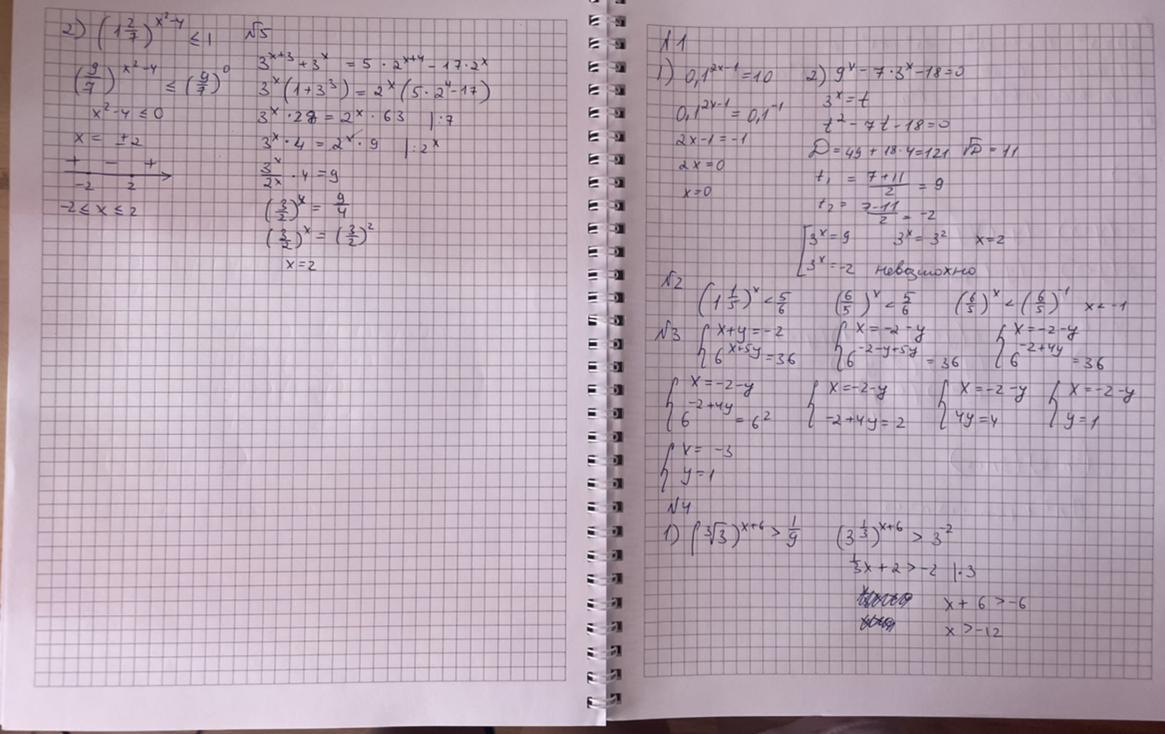 2) (1 2/7)^(x²-4) ≤ 1
(9/7)^(x²-4) ≤ (9/7)^0
x²-4 ≤ 0
x = ±2
+ - +
-2 2
-2 ≤ x ≤ 2
№5
3^(x+3) + 3^x = 5 · 2^(x+4) - 17 · 2^x
3^x (1+3³) = 2^x (5 · 2⁴ - 17)
3^x · 28 = 2^x · 63 |:7
3^x · 4 = 2^x · 9 |:2^x
3^x/2^x · 4 = 9
(3/2)^x = 9/4
(3/2)^x = (3/2)²
x=2
№1
1) 0,1^(2x-1) = 10
0,1^(2x-1) = 0,1^(-1)
2x-1 = -1
2x=0
x=0
2) 9^x - 7 · 3^x - 18 = 0
3^x = t
t² - 7t - 18 = 0
D = 49 + 18·4 = 121 √D = 11
t₁ = (7+11)/2 = 9
t₂ = (7-11)/2 = -2
[ 3^x = 9 3^x = 3² x=2
3^x = -2 невозможно
№2
(1 1/5)^x < 5/6 (6/5)^x < 5/6 (6/5)^x < (6/5)^(-1) x < -1
№3
{ x+y = -2 { x = -2-y { x = -2-y
6^(x+5y) = 36 6^(-2-y+5y) = 36 6^(-2+4y) = 36
{ x = -2-y { x = -2-y { x = -2-y { x = -2-y
6^(-2+4y) = 6² -2+4y = 2 4y = 4 y = 1
{ x = -3
y = 1
№4
1) (³√3)^(x+6) > 1/9 (3^(1/3))^(x+6) > 3^(-2)
1/3x + 2 > -2 |·3
x + 6 > -6
x > -12